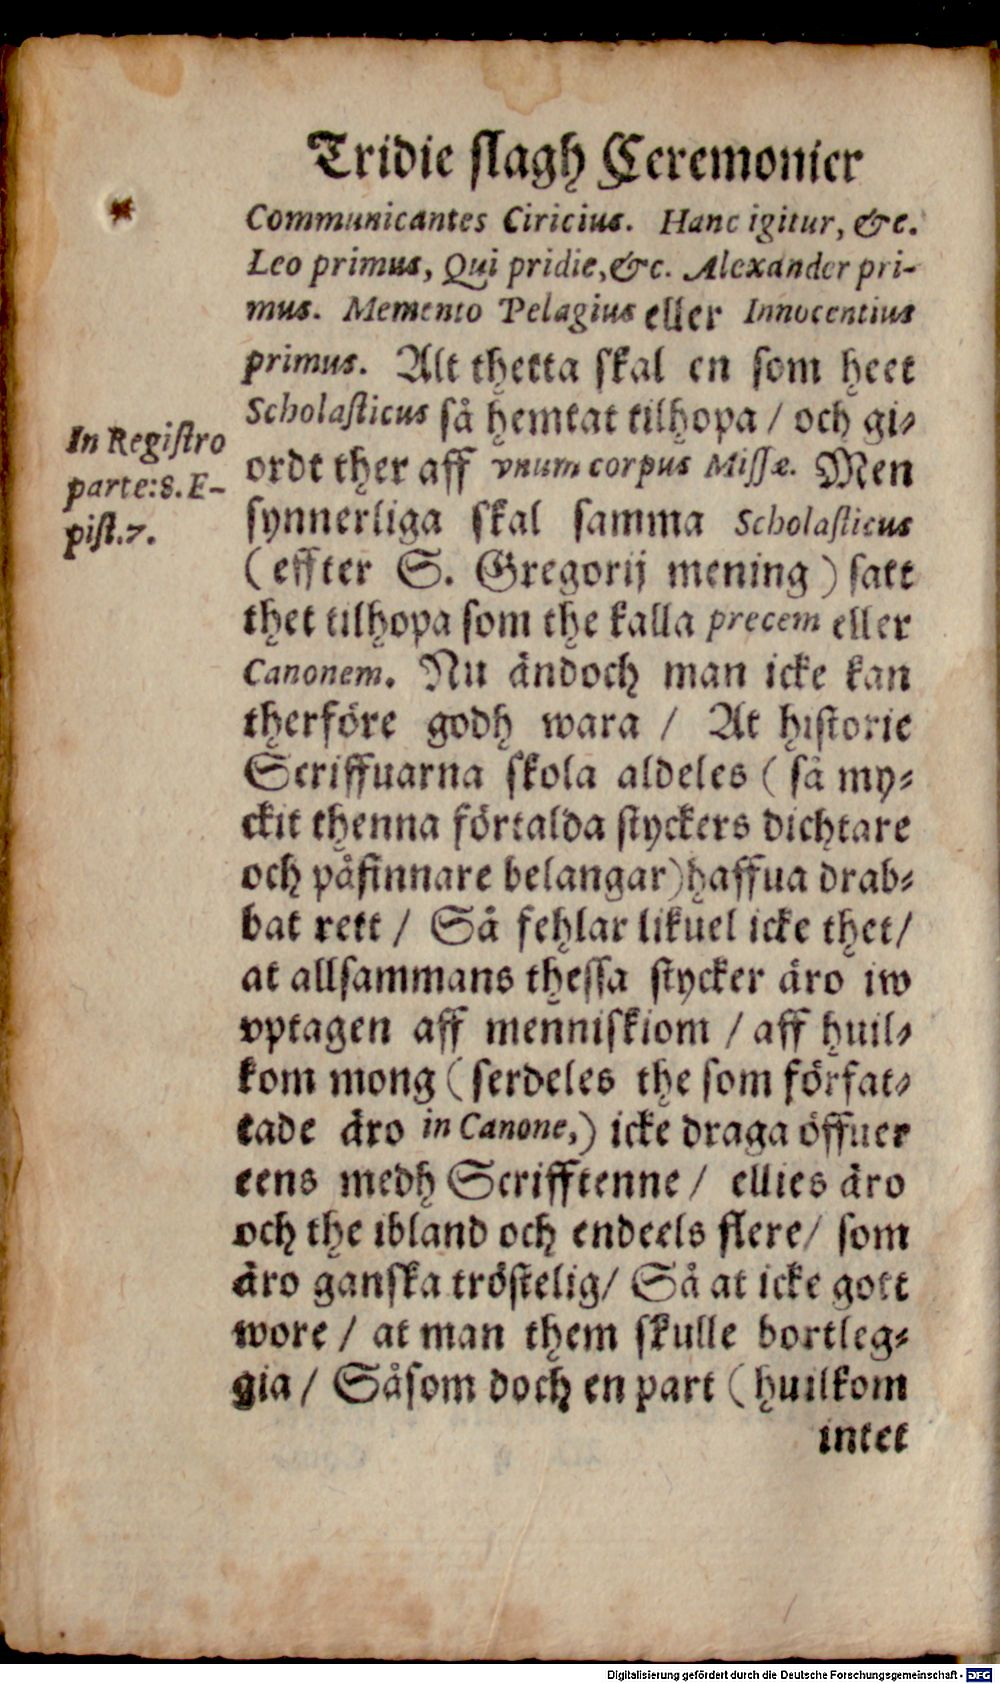 Tridie slagh Ceremonier
Communicantes Ciricius. Hanc igitur, &c.
Leo primus, Qui pridie, &c. Alexander pri-
mus. Memento Pelagius eller Innocentius
primus. Alt thetta skal en som heet
Scholasticus så hemtat tilhopa / och gi-
ordt ther aff vnum corpus Missæ. Men
synnerliga skal samma Scholasticus
(effter S. Gregorij mening) satt
thet tilhopa som the kalla precem eller
Canonem. Nu ändoch man icke kan
therföre godh wara / At historie
Scriffuarna skola aldeles (så my-
ckit thenna förtalda styckers dichtare
och påfinnare belangar) haffua drab-
bat rett / Så fehlar likuel icke thet /
at allsammans thessa stycker äro iw
vptagen aff menniskiom / aff huil-
kom mong (serdeles the som förfat-
tade äro in Canone,) icke draga öffuer
eens medh Scrifftenne / ellies äro
och the ibland och endeels flere / som
äro ganska tröstelig / Så at icke gott
wore / at man them skulle bortleg-
gia / Såsom doch en part (huilkom
intet
In Registro
parte: 8. E-
pist. 7.
Digitalisierung gefördert durch die Deutsche Forschungsgemeinschaft - DFG